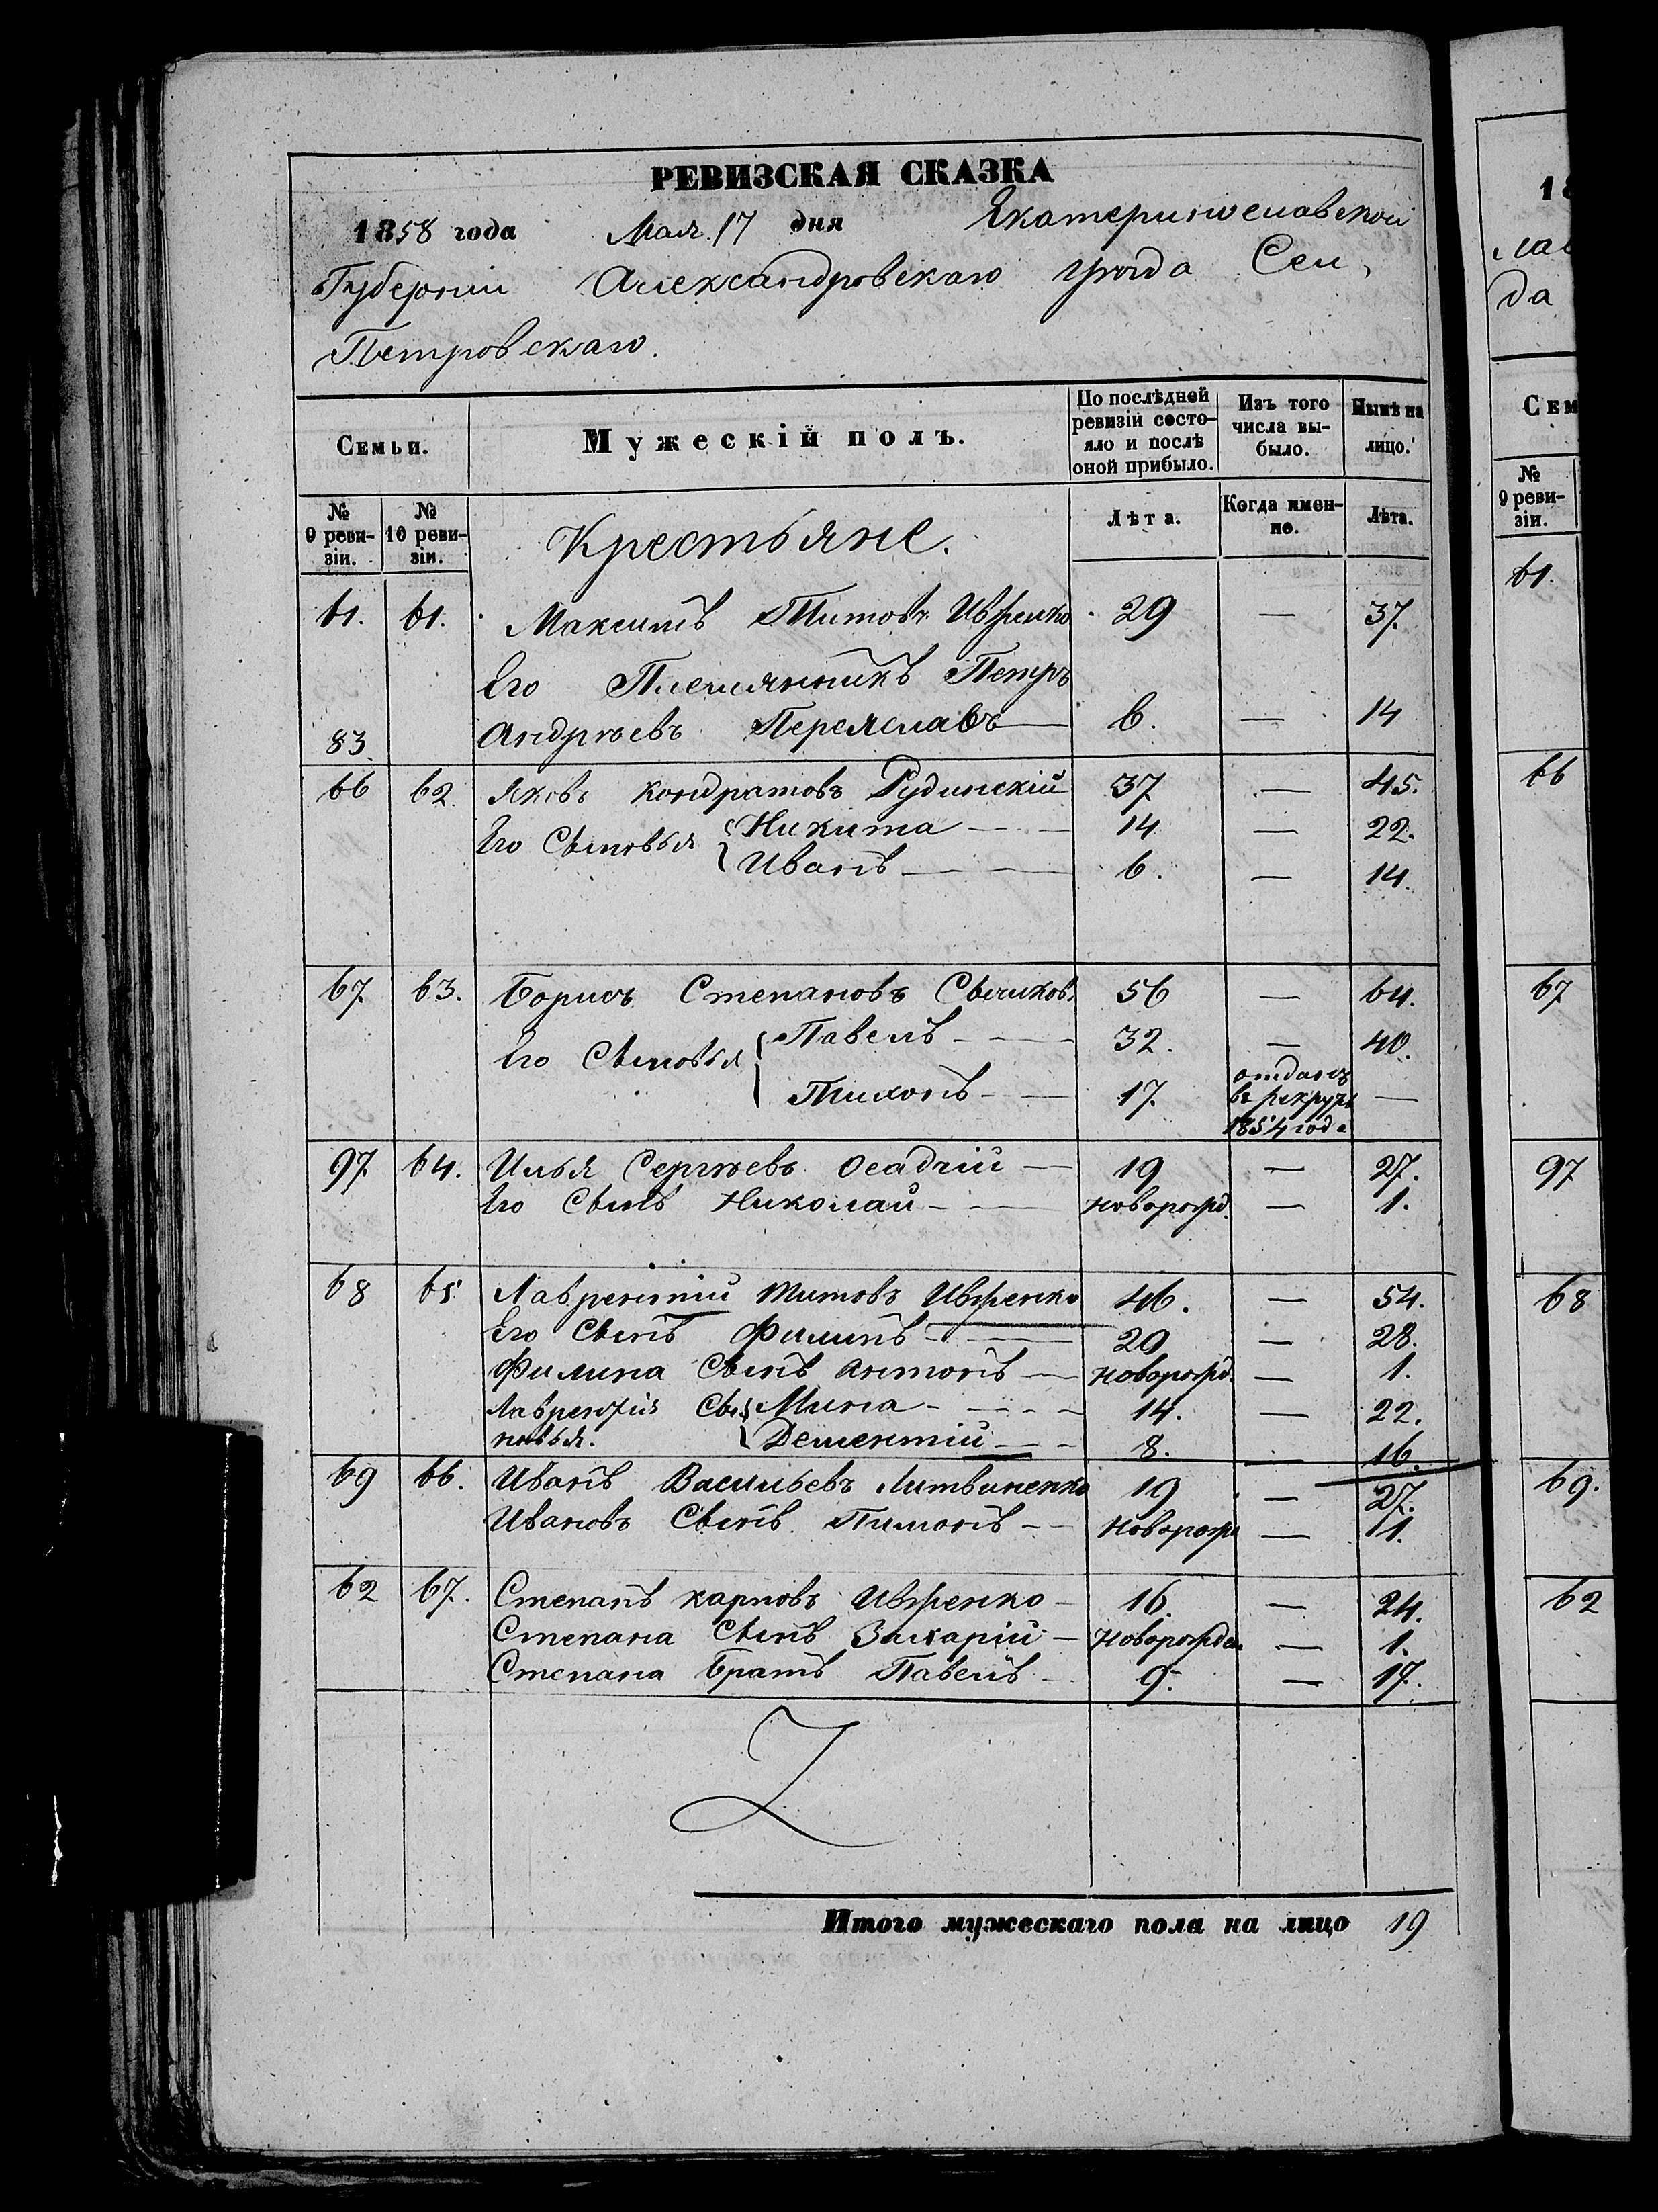 РЕВИЗСКАЯ СКАЗКА
1858 года Мая 17 дня Екатеринославской
Губерніи Александровскаго уѣзда Сел.
Петровскаго.
Семьи.
Мужескій полъ.
По послѣдней ревизіи состояло и послѣ оной прибыло.
Изъ того числа выбыло.
Нынѣ на лицо.
№ 9 ревизіи.
№ 10 ревизіи.
Крестьяне.
Лѣта.
Когда именно.
Лѣта.
61. 61. Максимъ Титовъ 29 — 37.
Его Племянникъ Петръ
83 Андрѣевъ Переяславъ — 6. — 14
66 62. Яковъ Кондратовъ Рудинскій 37 — 45.
Его Сыновья Никита — 14 — 22.
Иванъ — 6. — 14.
67. 63. Борисъ Степановъ 56 — 64.
Его Сыновья Павелъ — 32. — 40.
Тихонъ — 17. отданъ въ рекруты 1854 года —
97 64. Илья Сергѣевъ Осадчій — 19 — 27.
Его Сынъ Николай — новорожд. — 1.
68 65 Лаврентій Титовъ Ивженко 46. — 54.
Его Сынъ Филипъ — 20 — 28.
Филипа Сынъ Антонъ — новорожд. — 1.
Лаврентія Сыновья. Мина — 14. — 22.
Дементій — 8. — 16.
69 66. Иванъ Васильевъ Литвиненко 19 — 27.
Ивановъ Сынъ Пимонъ — новорож — 1.
62 67. Степанъ Карповъ Ивженко — 16. — 24.
Степана Сынъ Захарій — новорожден — 1.
Степана Братъ Павелъ — 9. — 17.
Итого мужескаго пола на лицо 19
18
да
Сем
№ 9 ревизіи.
61.
66
67
97
68
69.
62